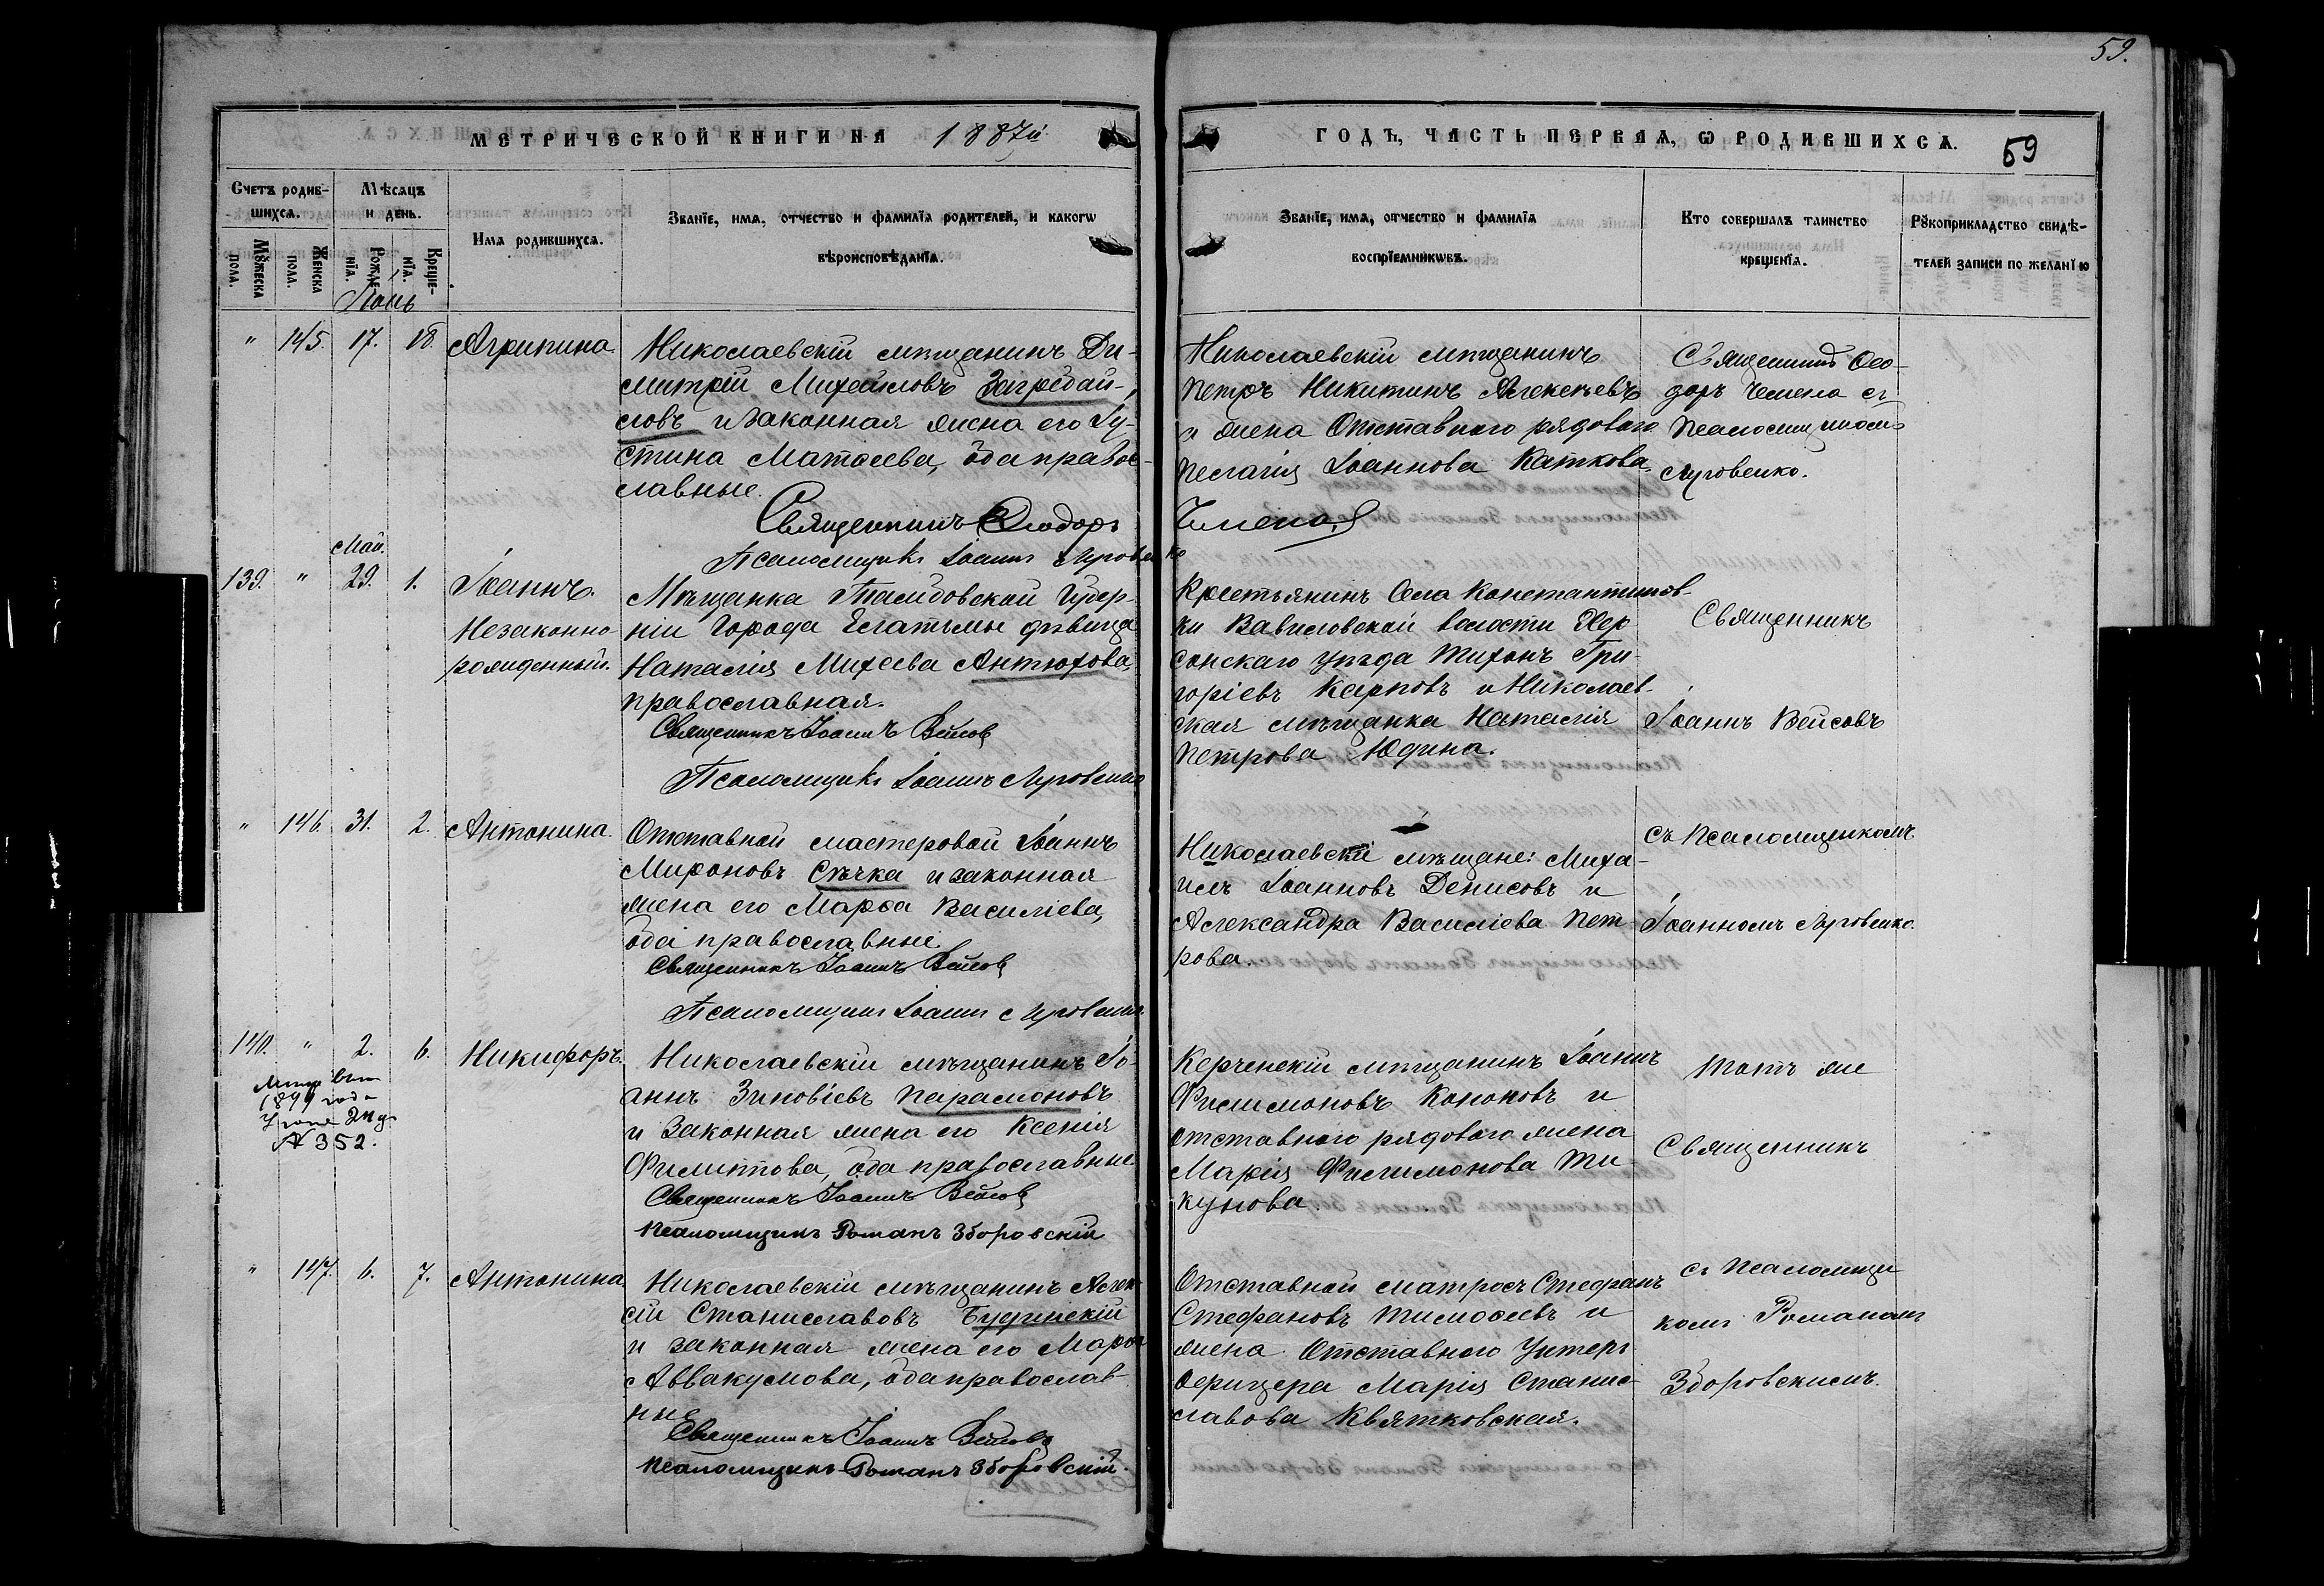 59.
МЕТРИЧЕСКОЙ КНИГИ НА 1887й
ГОДЪ, ЧАСТЬ ПЕРВАЯ, Ѡ РОДИВШИХСѦ.
59
Счетъ родив-
шихсѧ.
Мꙋжеска
пола.
Женска
пола.
Мѣсяцъ
и день.
Рожде-
нїѧ.
Креще-
нїѧ.
Имѧ родившихсѧ.
Званїе, имѧ, отчество и фамилїѧ родителей, и какогѡ
вѣроисповѣданїѧ.
Званїе, имѧ, отчество и фамилїѧ
воспрїемникѡвъ.
Кто совершалъ таинство
крещенїѧ.
Рꙋкоприкладство свидѣ-
телей записи по желанїю
" 145. 17. 18. Агрипина.
Николаевскій мѣщанинъ Ди-
митрій Михаиловъ
словъ и законная жена его Іу-
стина Матѳеева, оба правос-
славные.
Священникъ Ѳеодоръ
Псаломщикъ Іоаннъ
Николаевскій мѣщанинъ
Петръ Никитинъ Алексѣевъ
и жена Отставного рядового
Пелагія Іоаннова Каткова.
Священникъ Ѳео-
доръ Чемена съ
Псаломщикомъ
Луговенко.
Май.
139. " 29. 1. Іоаннъ.
Незаконно
рожденный.
Мѣщанка Тамбовской Губер-
ніи Города Елатьмы дѣвица
Наталія Михеева Антюхова,
православная.
Священникъ Іоаннъ Вейсовъ
Псаломщикъ Іоаннъ Луговенко
Крестьянинъ Села Константинов-
ки Вавиловской волости Хер
сонскаго уѣзда Тихонъ Гри-
горіевъ Карповъ и Николаев-
ская мѣщанка Наталія
Петрова Юдина.
Священникъ
Іоаннъ Вейсовъ
" 146. 31. 2. Антонина.
Отставной мастеровой Іоаннъ
Мироновъ Сѣчка и законная
жена его Марѳа Василіева,
оба православные.
Священникъ Іоаннъ Вейсовъ
Псаломщикъ Іоаннъ Луговенко
Николаевскіе мѣщане: Миха-
илъ Іоанновъ Денисовъ и
Александра Василіева Пет-
рова.
съ Псаломщикомъ
Іоанномъ Луговенко.
140. " 2. 6. Никифоръ.
года
№ 352.
Николаевскій мѣщанинъ Іо-
аннъ Зиновіевъ Парамоновъ
и Законная жена его Ксенія
Филиппова, оба православные.
Священникъ Іоаннъ Вейсовъ
Псаломщикъ Романъ Зборовскій
Керченскій мѣщанинъ Іоаннъ
Филимоновъ Кононовъ и
отставного рядового жена
Марія Филимонова Ти
кунова.
Тотъ же
Священникъ
" 147. 6. 7. Антонина.
Николаевскій мѣщанинъ Алек-
сій Станиславовъ Будинскій
и законная жена его Марѳа
Аввакумова, оба православ-
ные
Священникъ Іоаннъ Вейсовъ
Псаломщикъ Романъ Зборовскій.
Отставной матросъ Стефанъ
Стефановъ Тимоѳеевъ и
жена Отставного Унтеръ
Офицера Марія Станис-
лавова Квятковская.
съ Псаломщи
комъ Романомъ
Зборовскимъ.